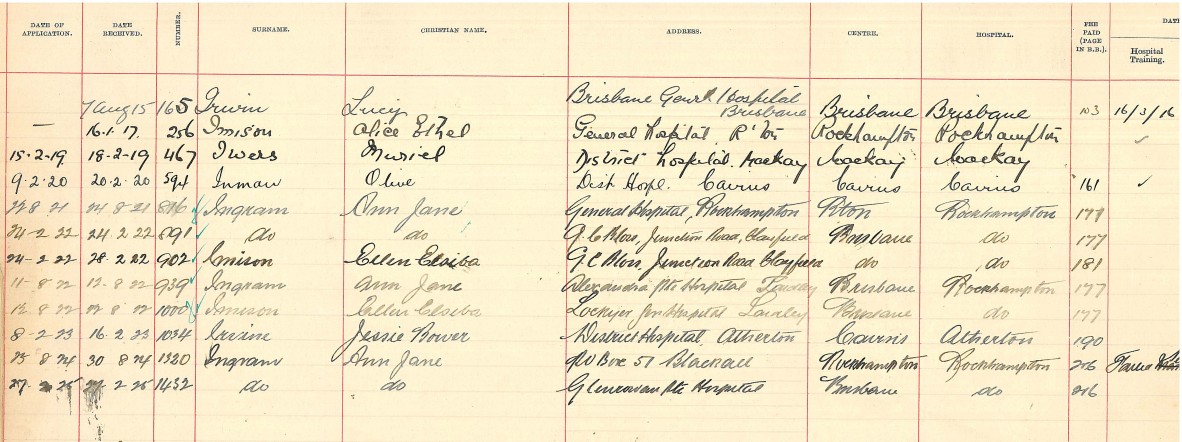 DATE OF APPLICATION. DATE RECEIVED. NUMBER. SURNAME. CHRISTIAN NAME. ADDRESS. CENTRE. HOSPITAL. FEE PAID (PAGE IN B.B.) DATE
Hospital Training.
7 Aug 15 165 Irwin Lucy Brisbane Genrl Hospital Brisbane Brisbane Brisbane 103 16/3/16
— 16.1.17. 256 Imison Alice Ethel General Hospital, R'ton Rockhampton Rockhampton ✓
15-2-19. 18-2-19 467 Iwers Muriel District Hospital. Mackay Mackay Mackay
9.2.20 20.2.20 594 Inman Olive Dist Hopl. Cairns Cairns Cairns 161 ✓
22 8 21 24 8 21 816 Ingram Ann Jane General Hospital, Rockhampton Rton Rockhampton 177
24-2 22 24 2 22 891 do do G.C Bloss, Junction Road, Clayfield Brisbane do 177
24-2-22 28.2.22 902 Imison Ellen Elsiba G C Bloss, Junction Road Clayfield do do 181
11-8 22 12-8 22 939 Ingram Ann Jane Alexandra Pte Hospital Brisbane Rockhampton 177
8 22 8 22 1000 Imison Ellen Elsiba Lockyer Gen Hospital Laidley Brisbane do 177
8-2-23 16.2.23 1034 Irvine Jessie Bower District Hospital, Atherton Cairns Atherton 190
8 24 30 8 24 1320 Ingram Ann Jane PO Box 51 Blackall Rockhampton Rockhampton 206
27-2-25 2-25 1432 do do Glenrowan Pte Hospital Brisbane do 216